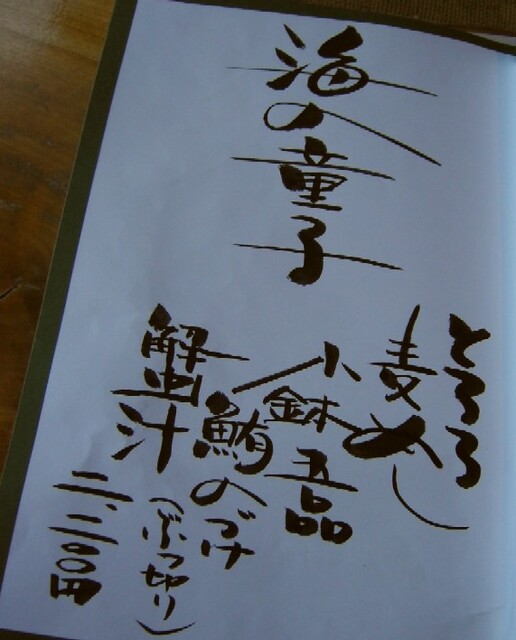 海の童子
とろろ
麦めし
小鉢五品
鮪のづけ
(ぶつ切り)
蟹汁
二、二〇〇円